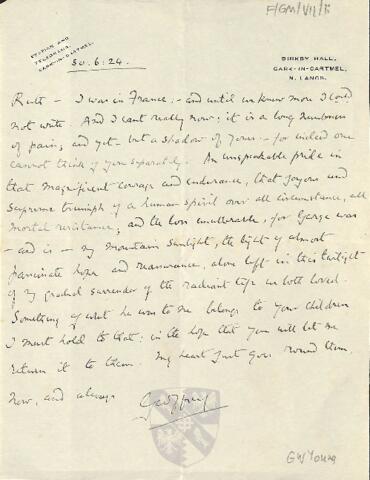 F/GM/VII/
STATION AND
TELEGRAMS,
CARK-IN-CARTMEL.
30.6.24.
BIRKBY HALL,
CARK-IN-CARTMEL,
N. LANCS.
Ruth – I was in France; – and until we knew more I could
not write. And I can't really now: it is a long numbness
of pain; and yet – but a shadow of yours – for indeed one
cannot think of you separately. An unspeakable pride in
that magnificent courage and endurance, that joyous and
supreme triumph of a human spirit over all circumstance, all
mortal resistance; and the loss unutterable, for George was
– and is – my mountain sunlight, the light of almost
passionate hope and reassurance, alone left in this twilight
of my gradual surrender of the radiant life we both loved.
Something of what he was to me belongs to your children
I must hold to that: in the hope that you will let me
return it to them. My heart just goes round them.
Now, and always
Geoffrey
GW Young